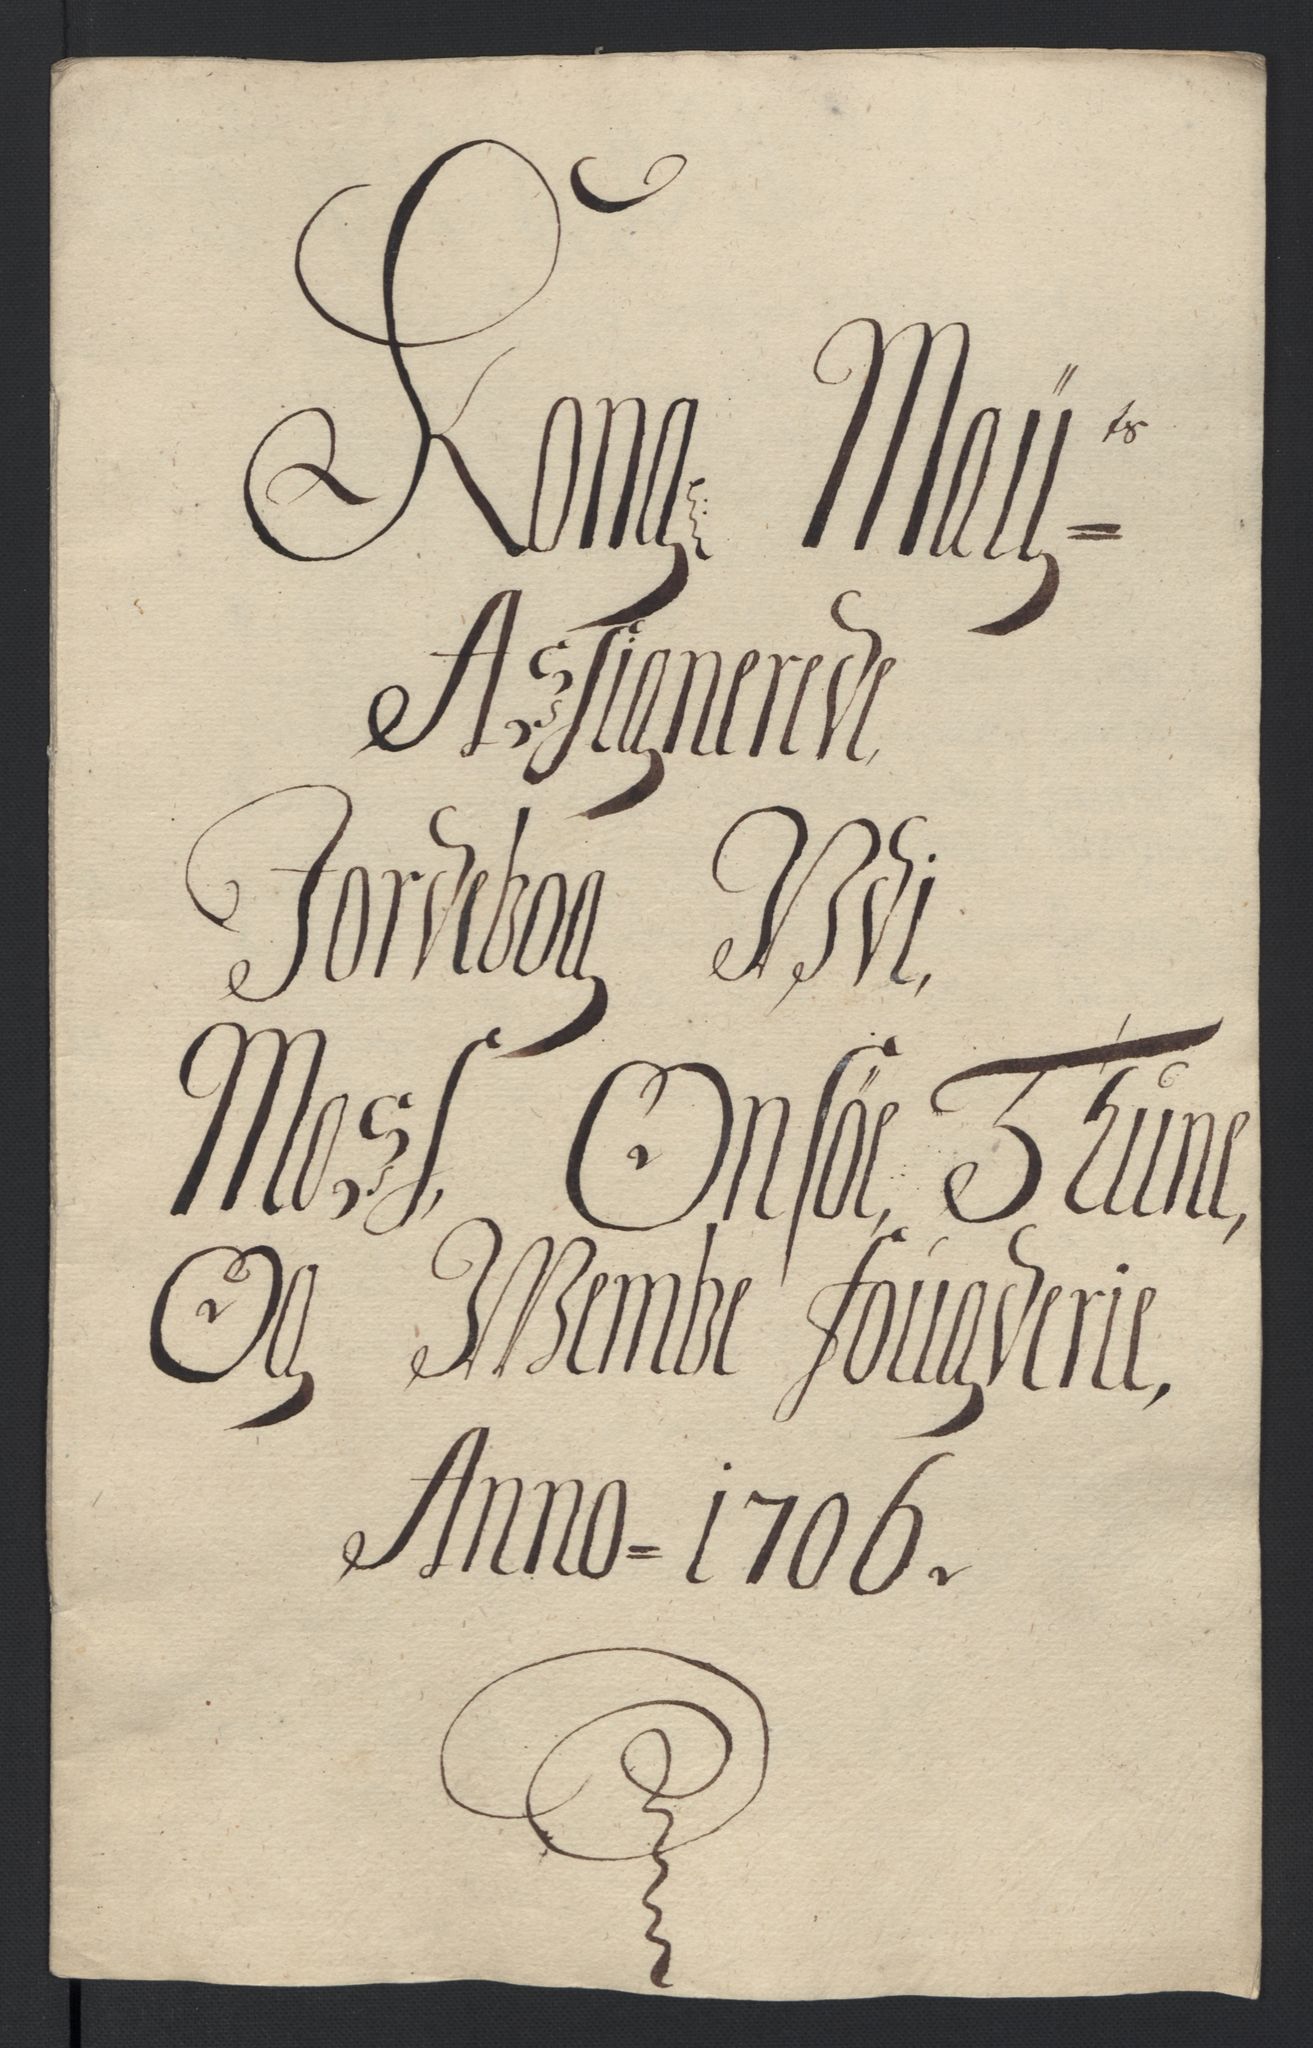 Kong: Maÿ=ts
Assignerede
Jordebog Vdi,
Moss, Onsöe, Thune,
Og Wembe fougderie,
Anno= 1706.